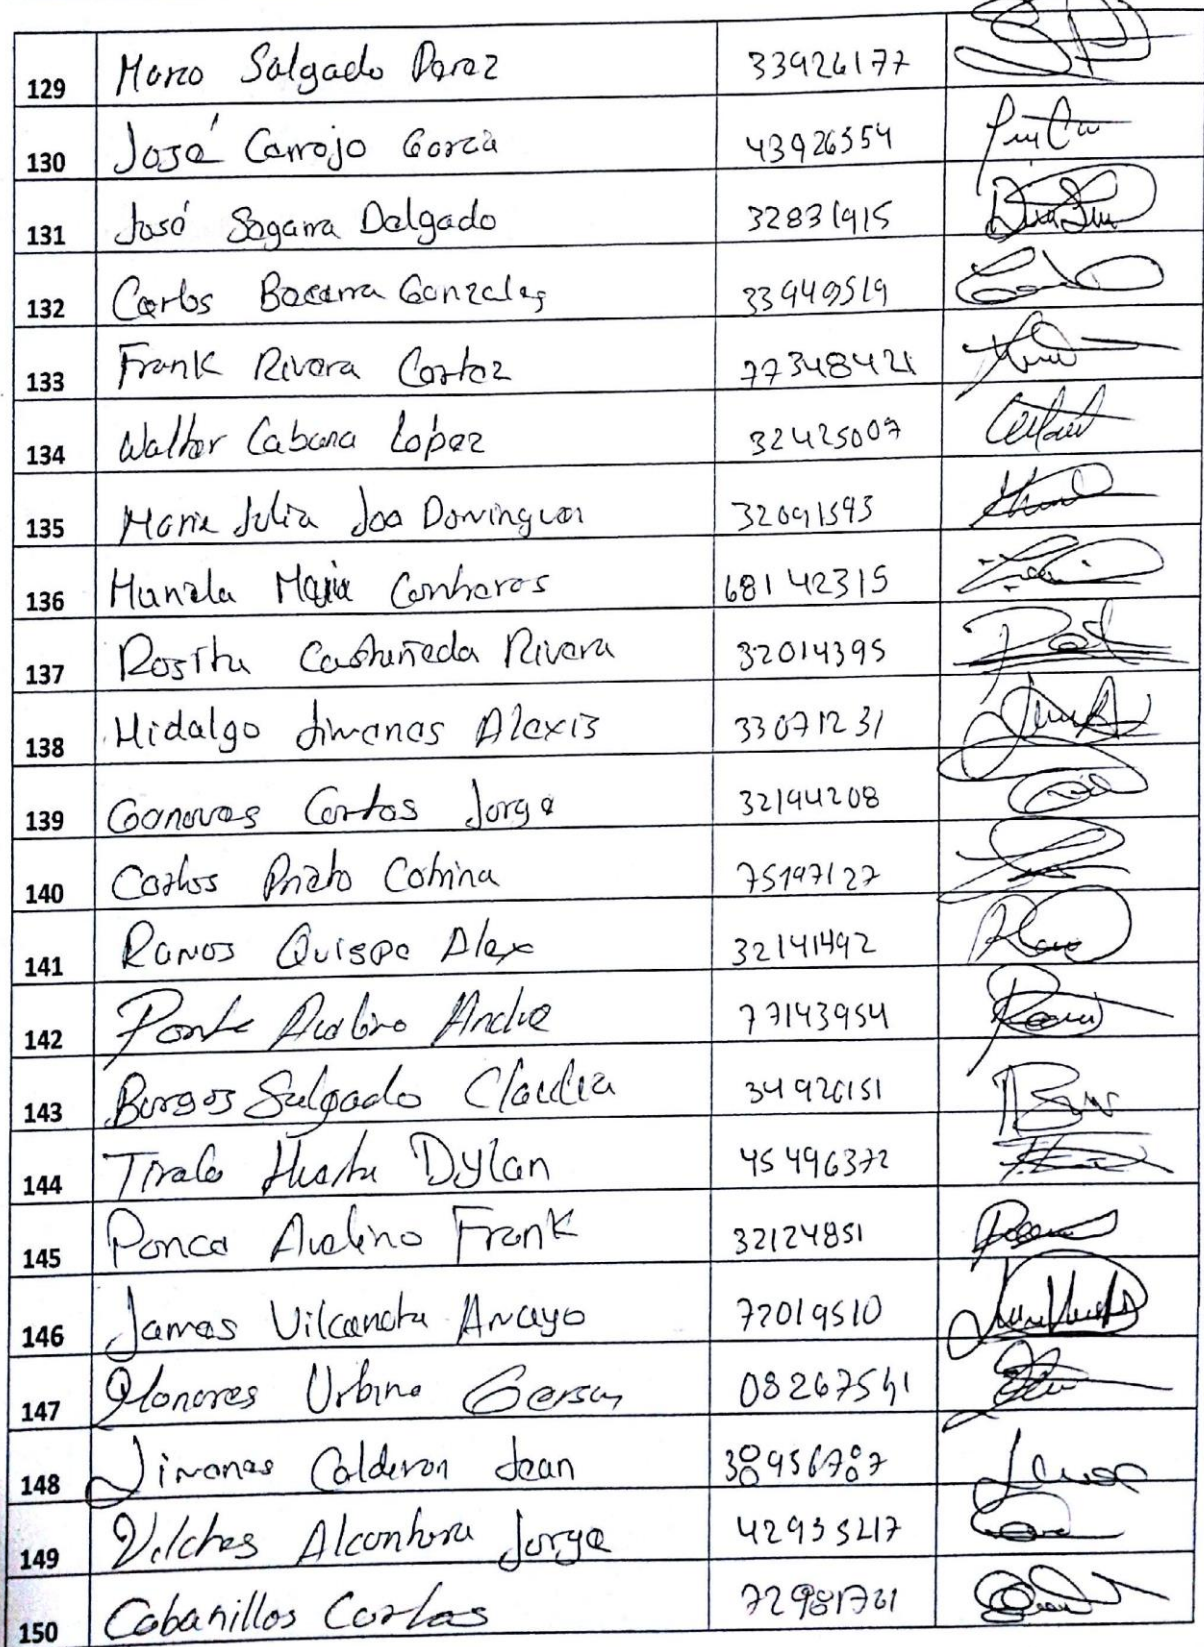 129 Marco Salgado Perez 33926177
130 José Carrojo Garcia 43926554
131 José Sagarra Delgado 32831915
132 Carlos Becerra Gonzales 33949519
133 Frank Rivera Cortez 77348421
134 Walter Cabana Lopez 32425007
135 Maria Julia Joo Dominguez 32091593
136 Maria 68142315
137 Rosita Castañeda Rivera 32014395
138 Hidalgo Jimenes Alexis 33071231
139 Genoves Cortes Jorge 32194208
140 Carlos Prieto Cotrina 75197127
141 Ramos Quispe Alex 32141492
142 Ponte Avelino Andre 77143954
143 Burgos Salgado Claudia 34926151
144 Dylan 45496372
145 Ponce Avelino Frank 32124851
146 James Arcayo 72019510
147 Honores Urbina Gerson
148 Jimenes Calderon Jean
149 Vilches Alcantara Jorge 42935217
150 Cabanillos Carlos